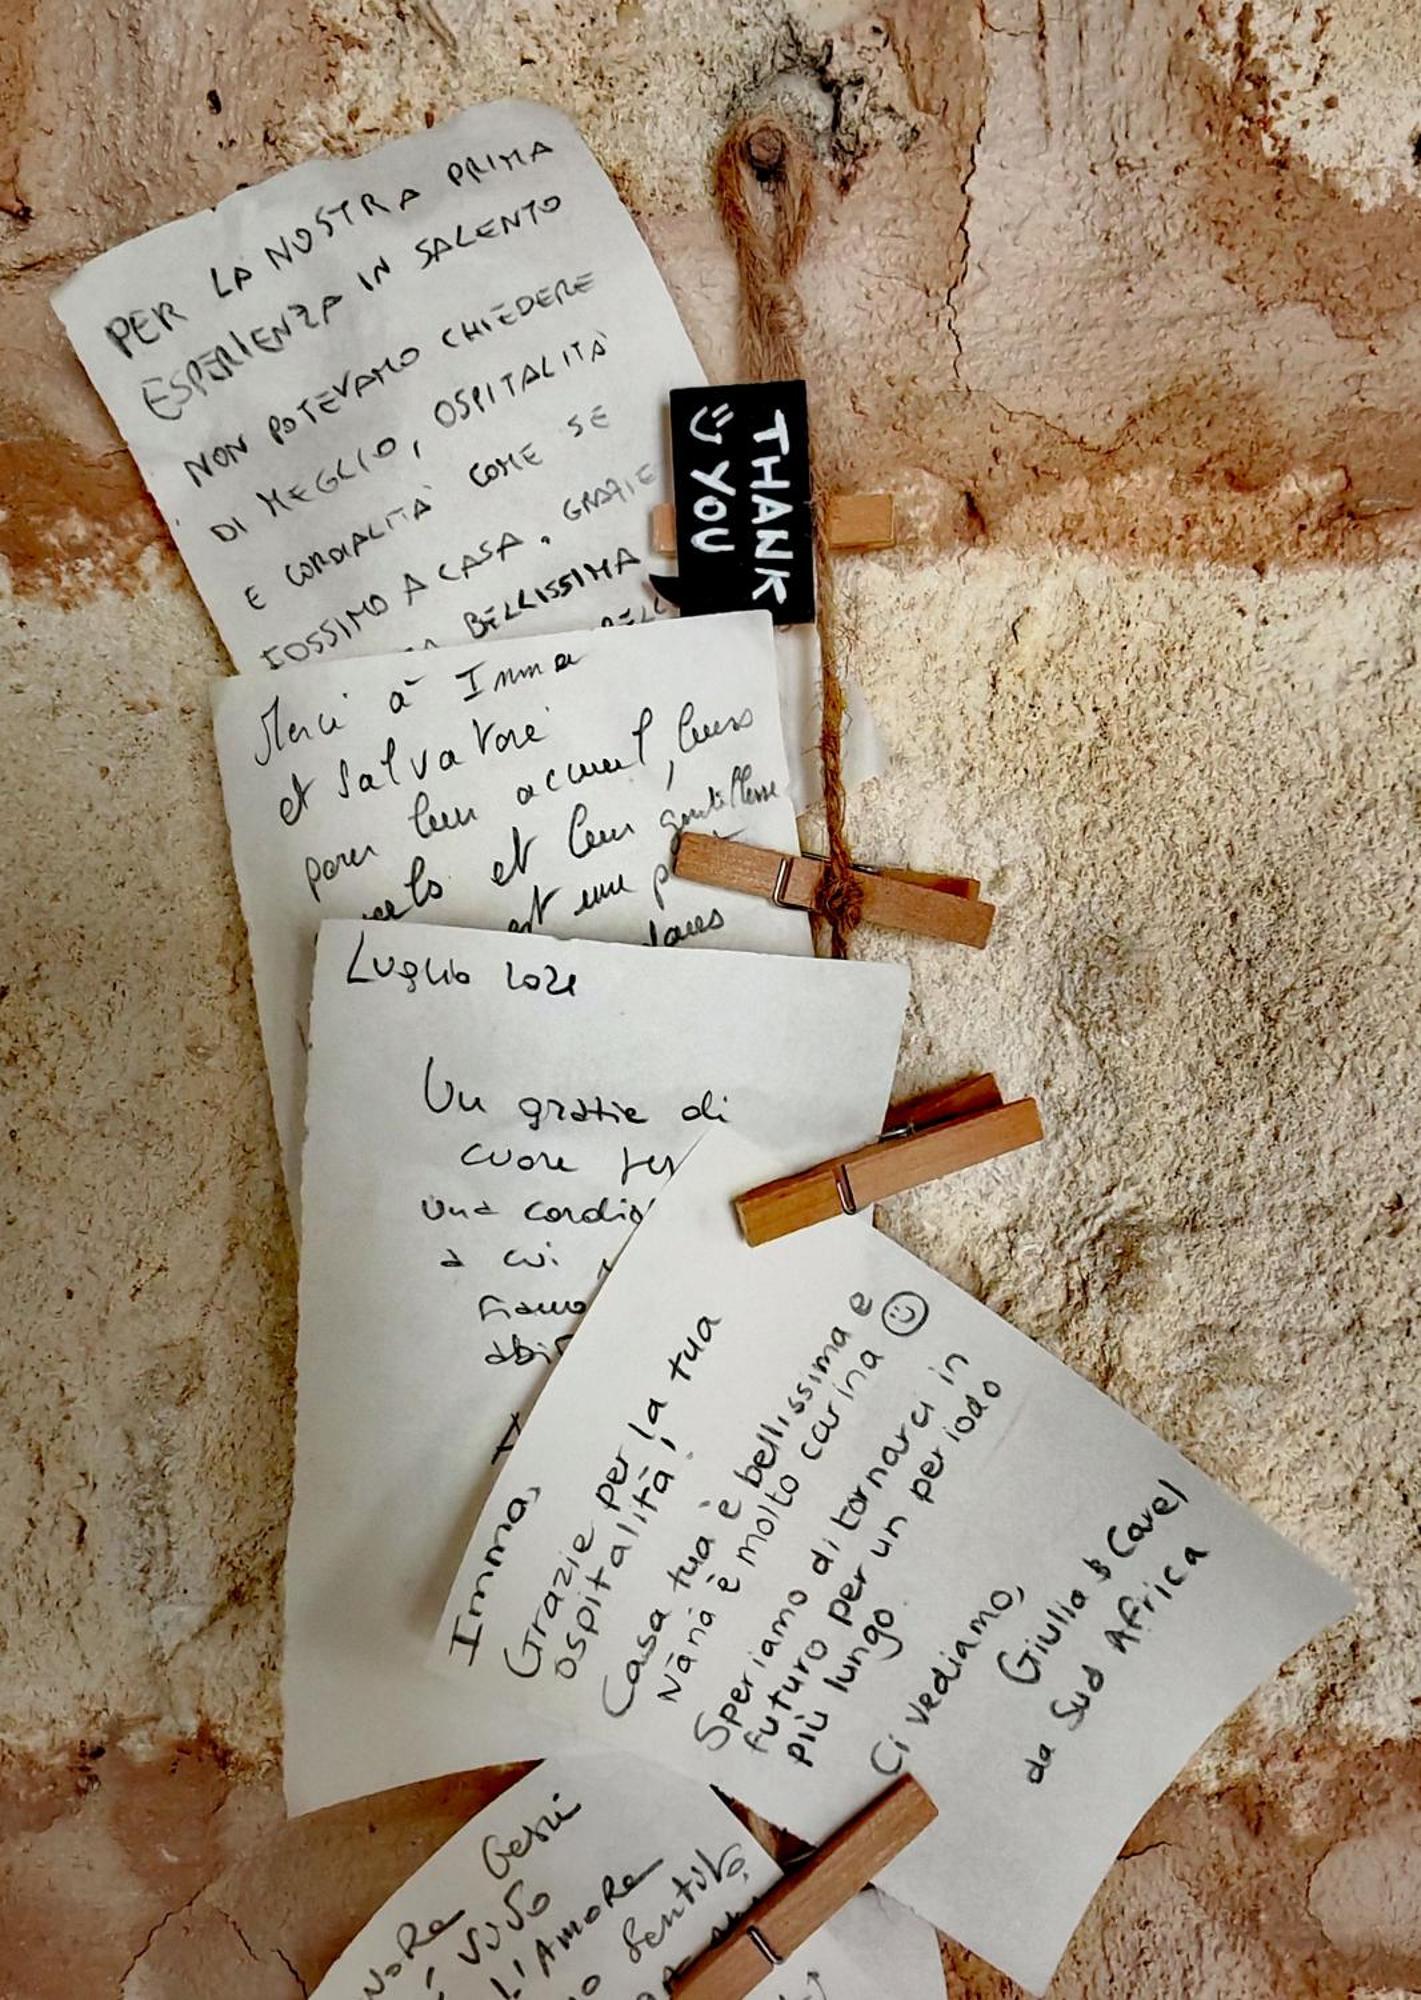 PER LA NOSTRA PRIMA
ESPERIENZA IN SALENTO
NON POTEVAMO CHIEDERE
DI MEGLIO, OSPITALITÀ
E CORDIALITÀ COME SE
FOSSIMO A CASA. GRAZIE
BELLISSIMA
THANK
YOU
Merci à Imma
et Salvatore
pour leur accueil, leurs
et leur gentillesse
est une
dans
Luglio 2021
Un grazie di
cuore per
una
a cui
siamo
Imma,
Grazie per la tua
ospitalità!
Casa tua è bellissima e
Nanà è molto carina
Speriamo di tornarci in
futuro per un periodo
più lungo.
Ci vediamo,
Giulia & Cavel
da Sud Africa
Gesù
L'AMORE
sentito